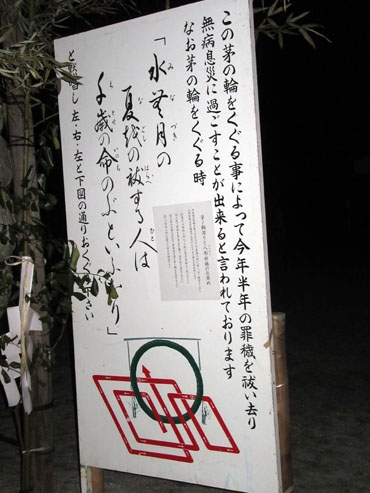 この茅の輪をくぐる事によって今年半年の罪穢を祓い去り
無病息災に過ごすことが出来ると言われております
なお茅の輪をくぐる時
「水無月の
みなづき
夏越の祓する人は
なごし はらへ ひと
千歳の命のぶといふなり」
ちとせ いのち
と唱し 左・右・左と下図の通りおくぐり下さい